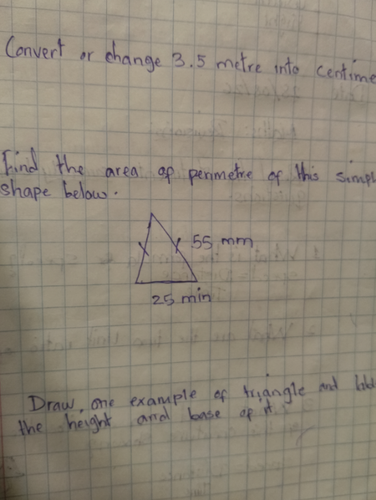 Convert or change 3.5 metre into centime
Find the area of perimetre of this simpl
shape below.
55 mm
25 min
Draw one example of triangle and
the height and base of it.